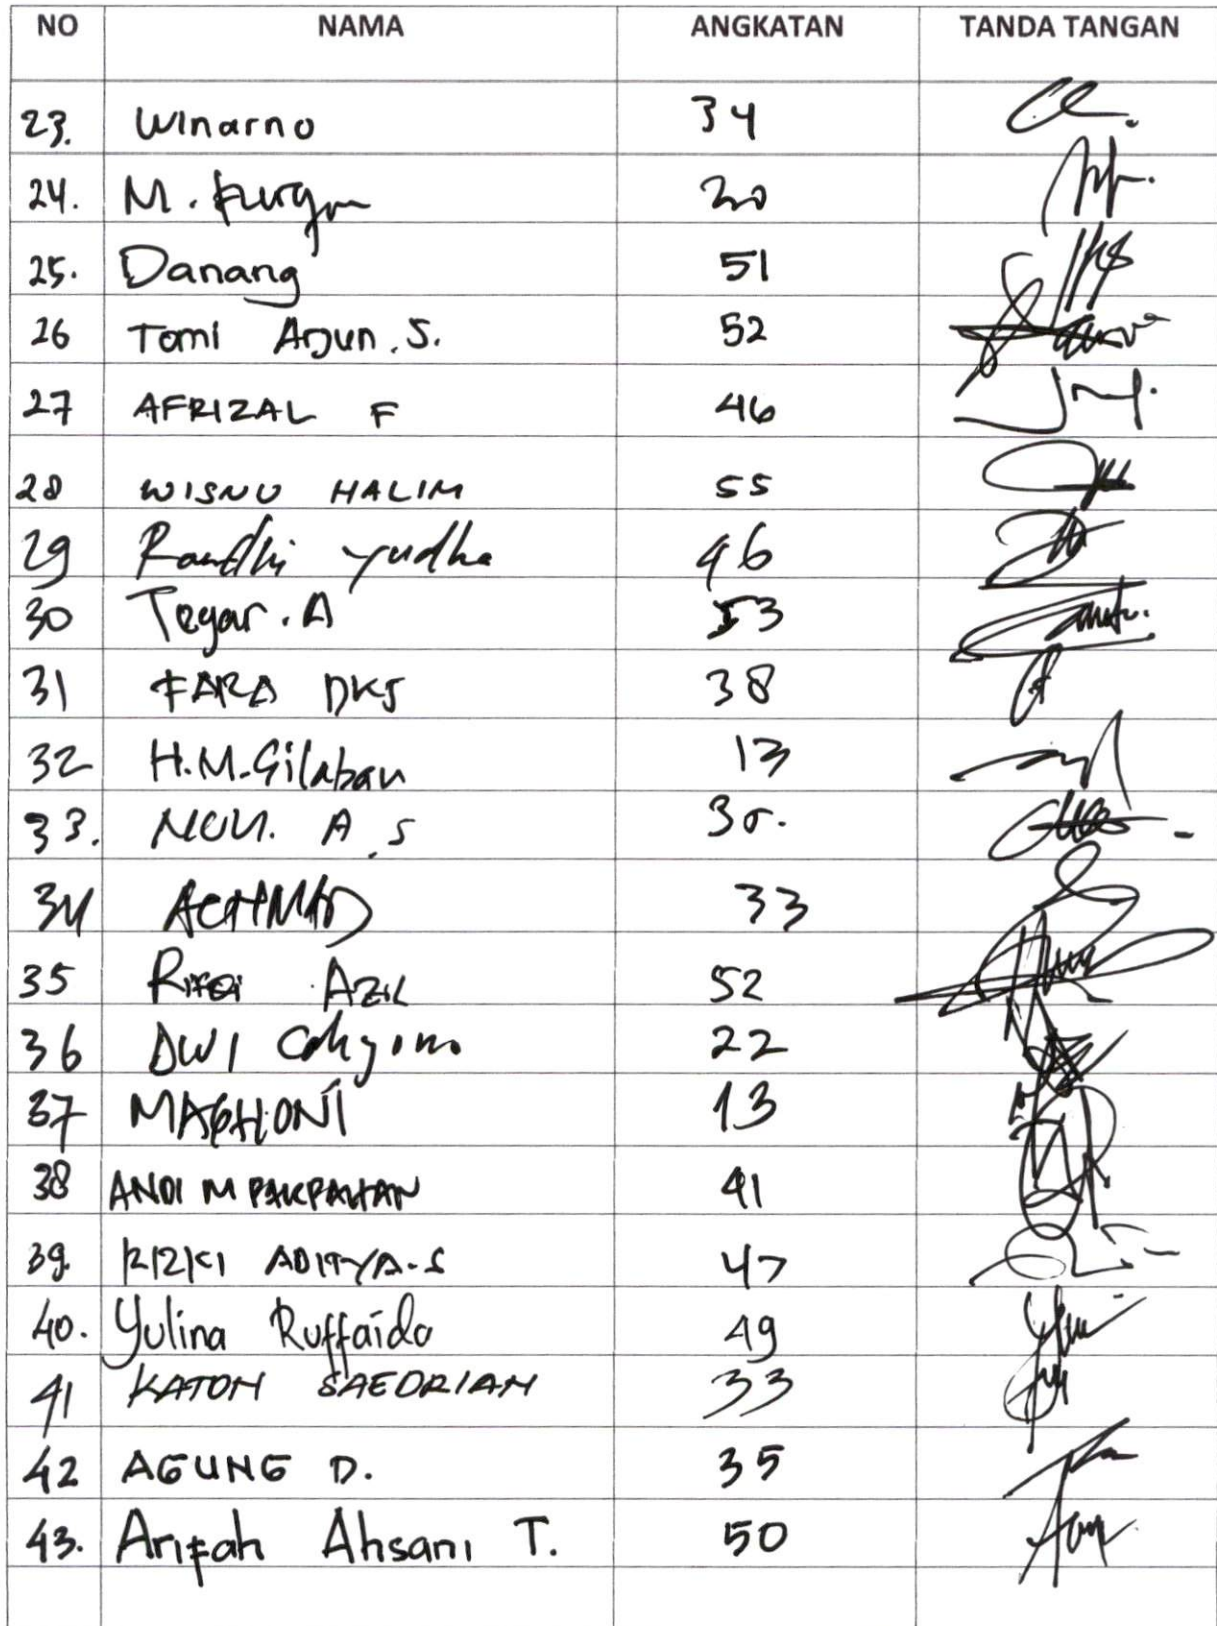 NO NAMA ANGKATAN TANDA TANGAN
23. Winarno 34
24. M. Furqon 20
25. Danang 51
26 Tomi Arjun. S. 52
27 AFRIZAL F 46
28 WISNU HALIM 55
29 Randhi yudha 46
30 Tegar. A 53
31 FARA DKS 38
32 H.M. 13
33. MOH. A.S 35.
34 ACHMAD 33
35 AZIL 52
36 DWI Cahyono 22
37 MAGHONI 13
38 ANDI M PAKPAHAN 41
39. RIZKI ADITYA.S 47
40. Yulina Ruffaida 49
41 KATON SAEDRIAN 33
42 AGUNG D. 35
43. Arifah Ahsani T. 50